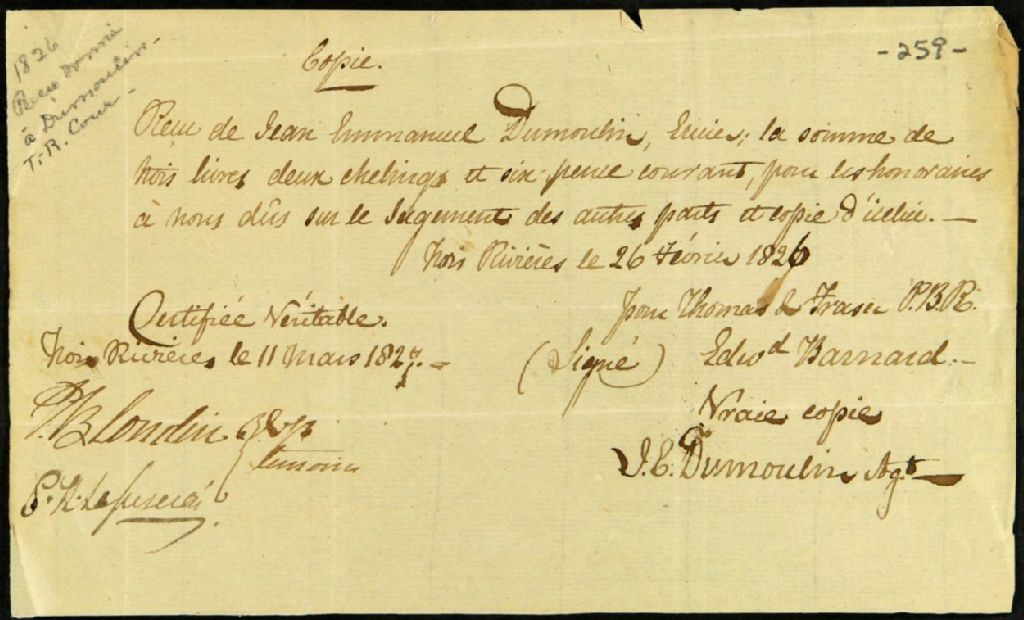 1826
Recu donné
à Dumoulin
T. R. Cour
- 259 -
Copie.
Reçu de Jean Emmanuel Dumoulin, Ecuier, la somme de
trois livres deux chelings et six pence courant, pour les honoraires
à nous dûs sur le Jugement des autres parts et copie d'icelui. —
Trois Rivières le 26 Février 1826
pour Thomas & Fraser P.B.R.
(Signé) Edwd Barnard. —
Certifiée Véritable.
Trois Rivières le 11 Mars 1827. —
Vraie copie
J. E. Dumoulin Agt
Blondin
témoins